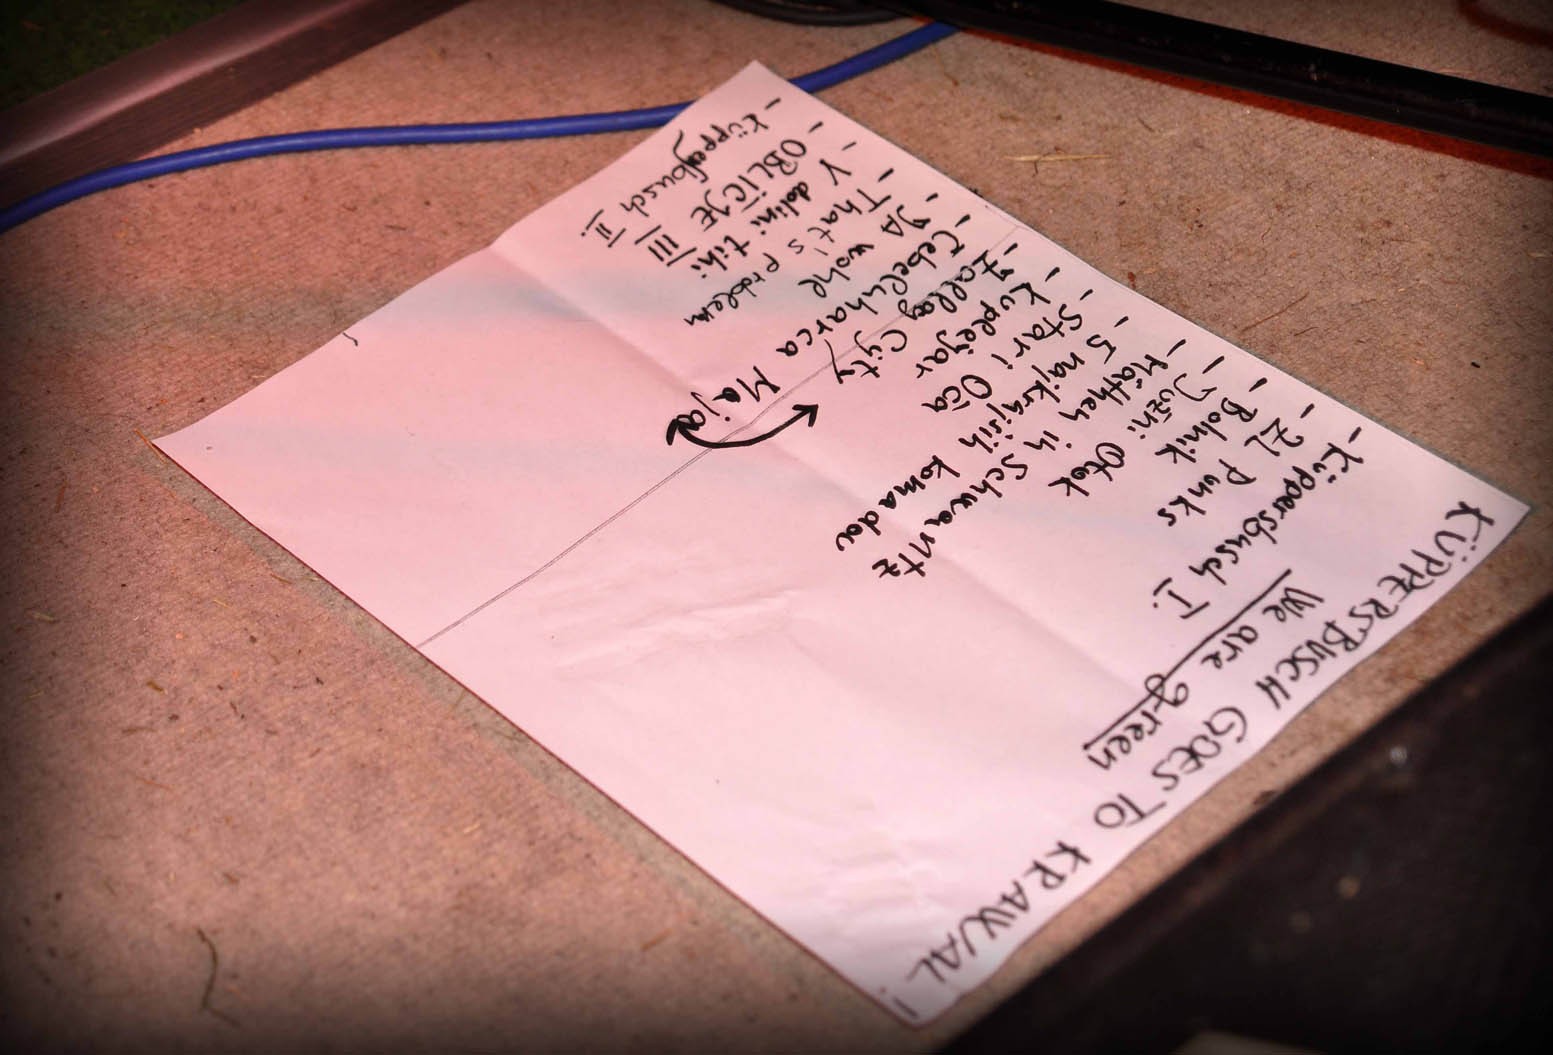 KÜPPERSBUSCH GOES TO KRAWAL!
We are green
- Küppersbusch I.
- Punks
- Bolnik
- Južni Otok
- Mäthen in Schwantz
- 5 najkrajših komadov
- Stari Oča
- Kuplejar
- Zallag Cyty
- Čebeliharca Maja
- JA wohl
- That's problem
- V dolini tihi
- OBLICJE III
- Küppersbusch II.